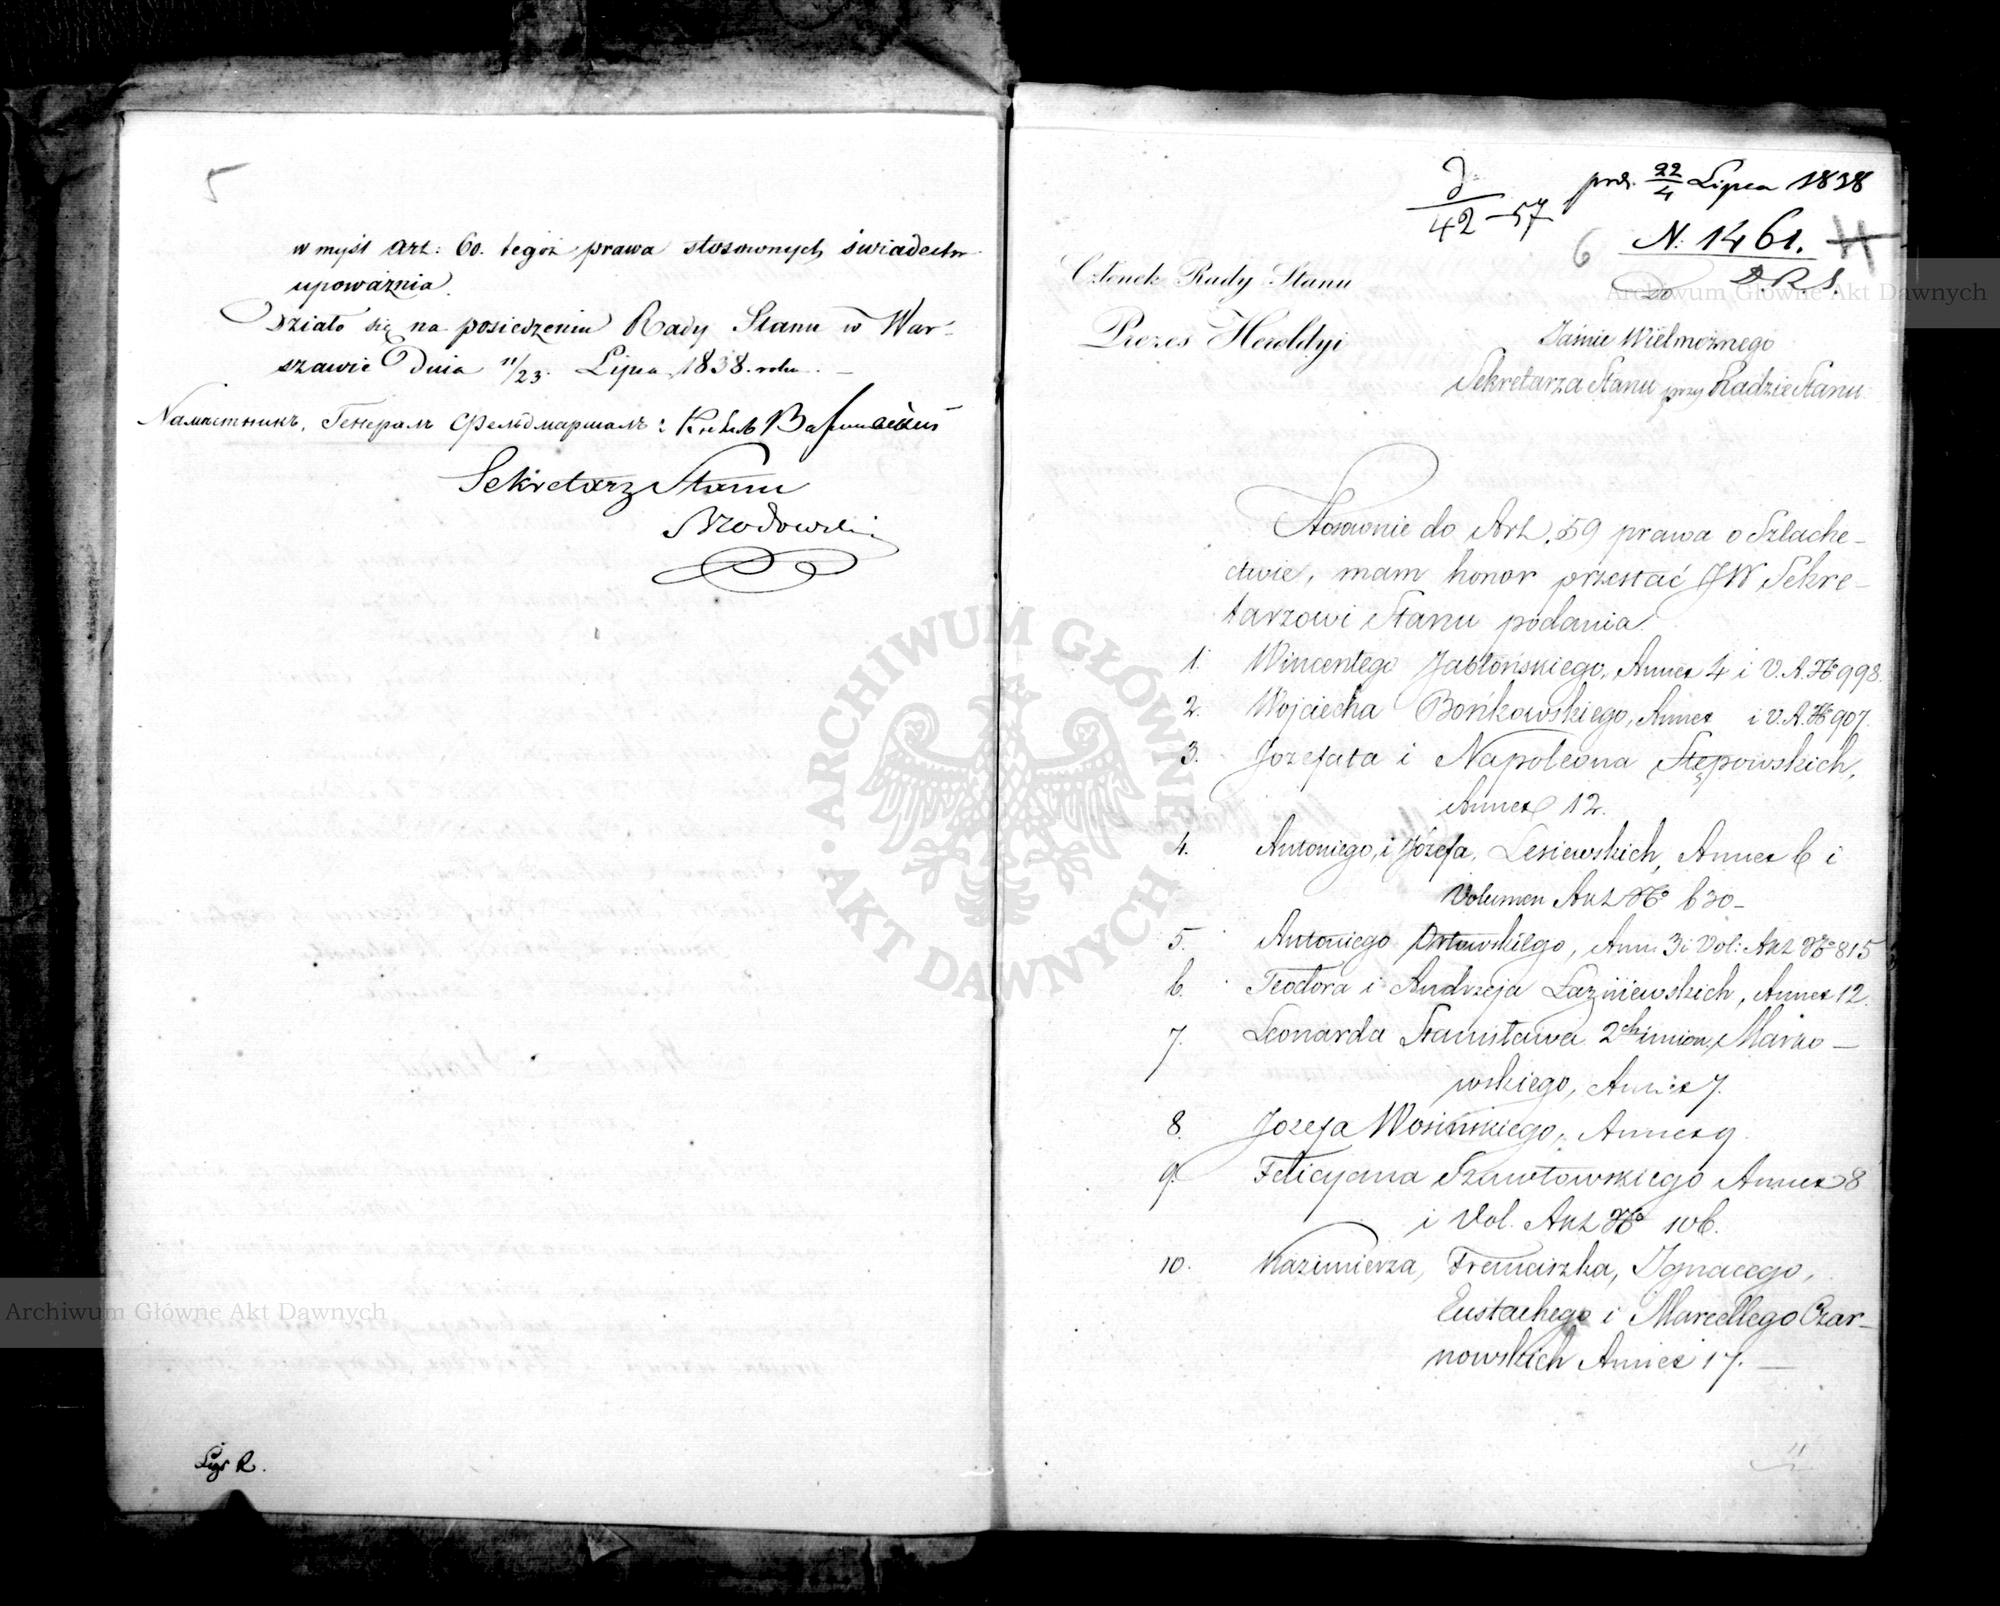 5
w myśl art: 60. tegoż prawa stosownych świadectw
upoważnia.
Działo się na posiedzeniu Rady Stanu w War-
szawie Dnia 11/23. Lipca 1838. roku. —
Намѣстникъ, Генералъ Фельдмаршалъ: Князь Варшавскій
Sekretarz Stanu
Brodowski
Ligr R.
42-57
prds. 22/4 Lipca 1838
6 N: 1461.
D.R.S.
Członek Rady Stanu
Prezes Heroldyi
Do
Jaśnie Wielmożnego
Sekretarza Stanu przy Radzie Stanu
Stosownie do Art. 59 prawa o Szlache-
ctwie, mam honor przesłać JW Sekre-
tarzowi Stanu podania
1. Wincentego Jabłońskiego, Annex 4 i V. A. No 998.
2. Wojciecha Bońkowskiego, Annex i V. A. No 907.
3. Jozefata i Napoleona Stępowskich,
Annex 12.
4. Antoniego, i Józefa, Lesiewskich, Annex 6 i
Volumen Akt No 630-
5. Antoniego Orłowskiego, Ann. 3 i Vol: Akt No 815
6. Teodora i Andrzeja Łazniewskich, Annex 12.
7. Leonarda Stanisława 2ch imion, Marko-
wskiego, Annex 7.
8. Jozefa Wosińskiego, Annex 9.
9. Felicyana Szawłowskiego Annex 8
i Vol. Akt No 106.
10. Kazimierza, Franciszka, Ignacego,
Eustachego i Marcellego Czar-
nowskich Annex 17. —
ARCHIWUM GŁÓWNE AKT DAWNYCH
Archiwum Główne Akt Dawnych
Archiwum Główne Akt Dawnych